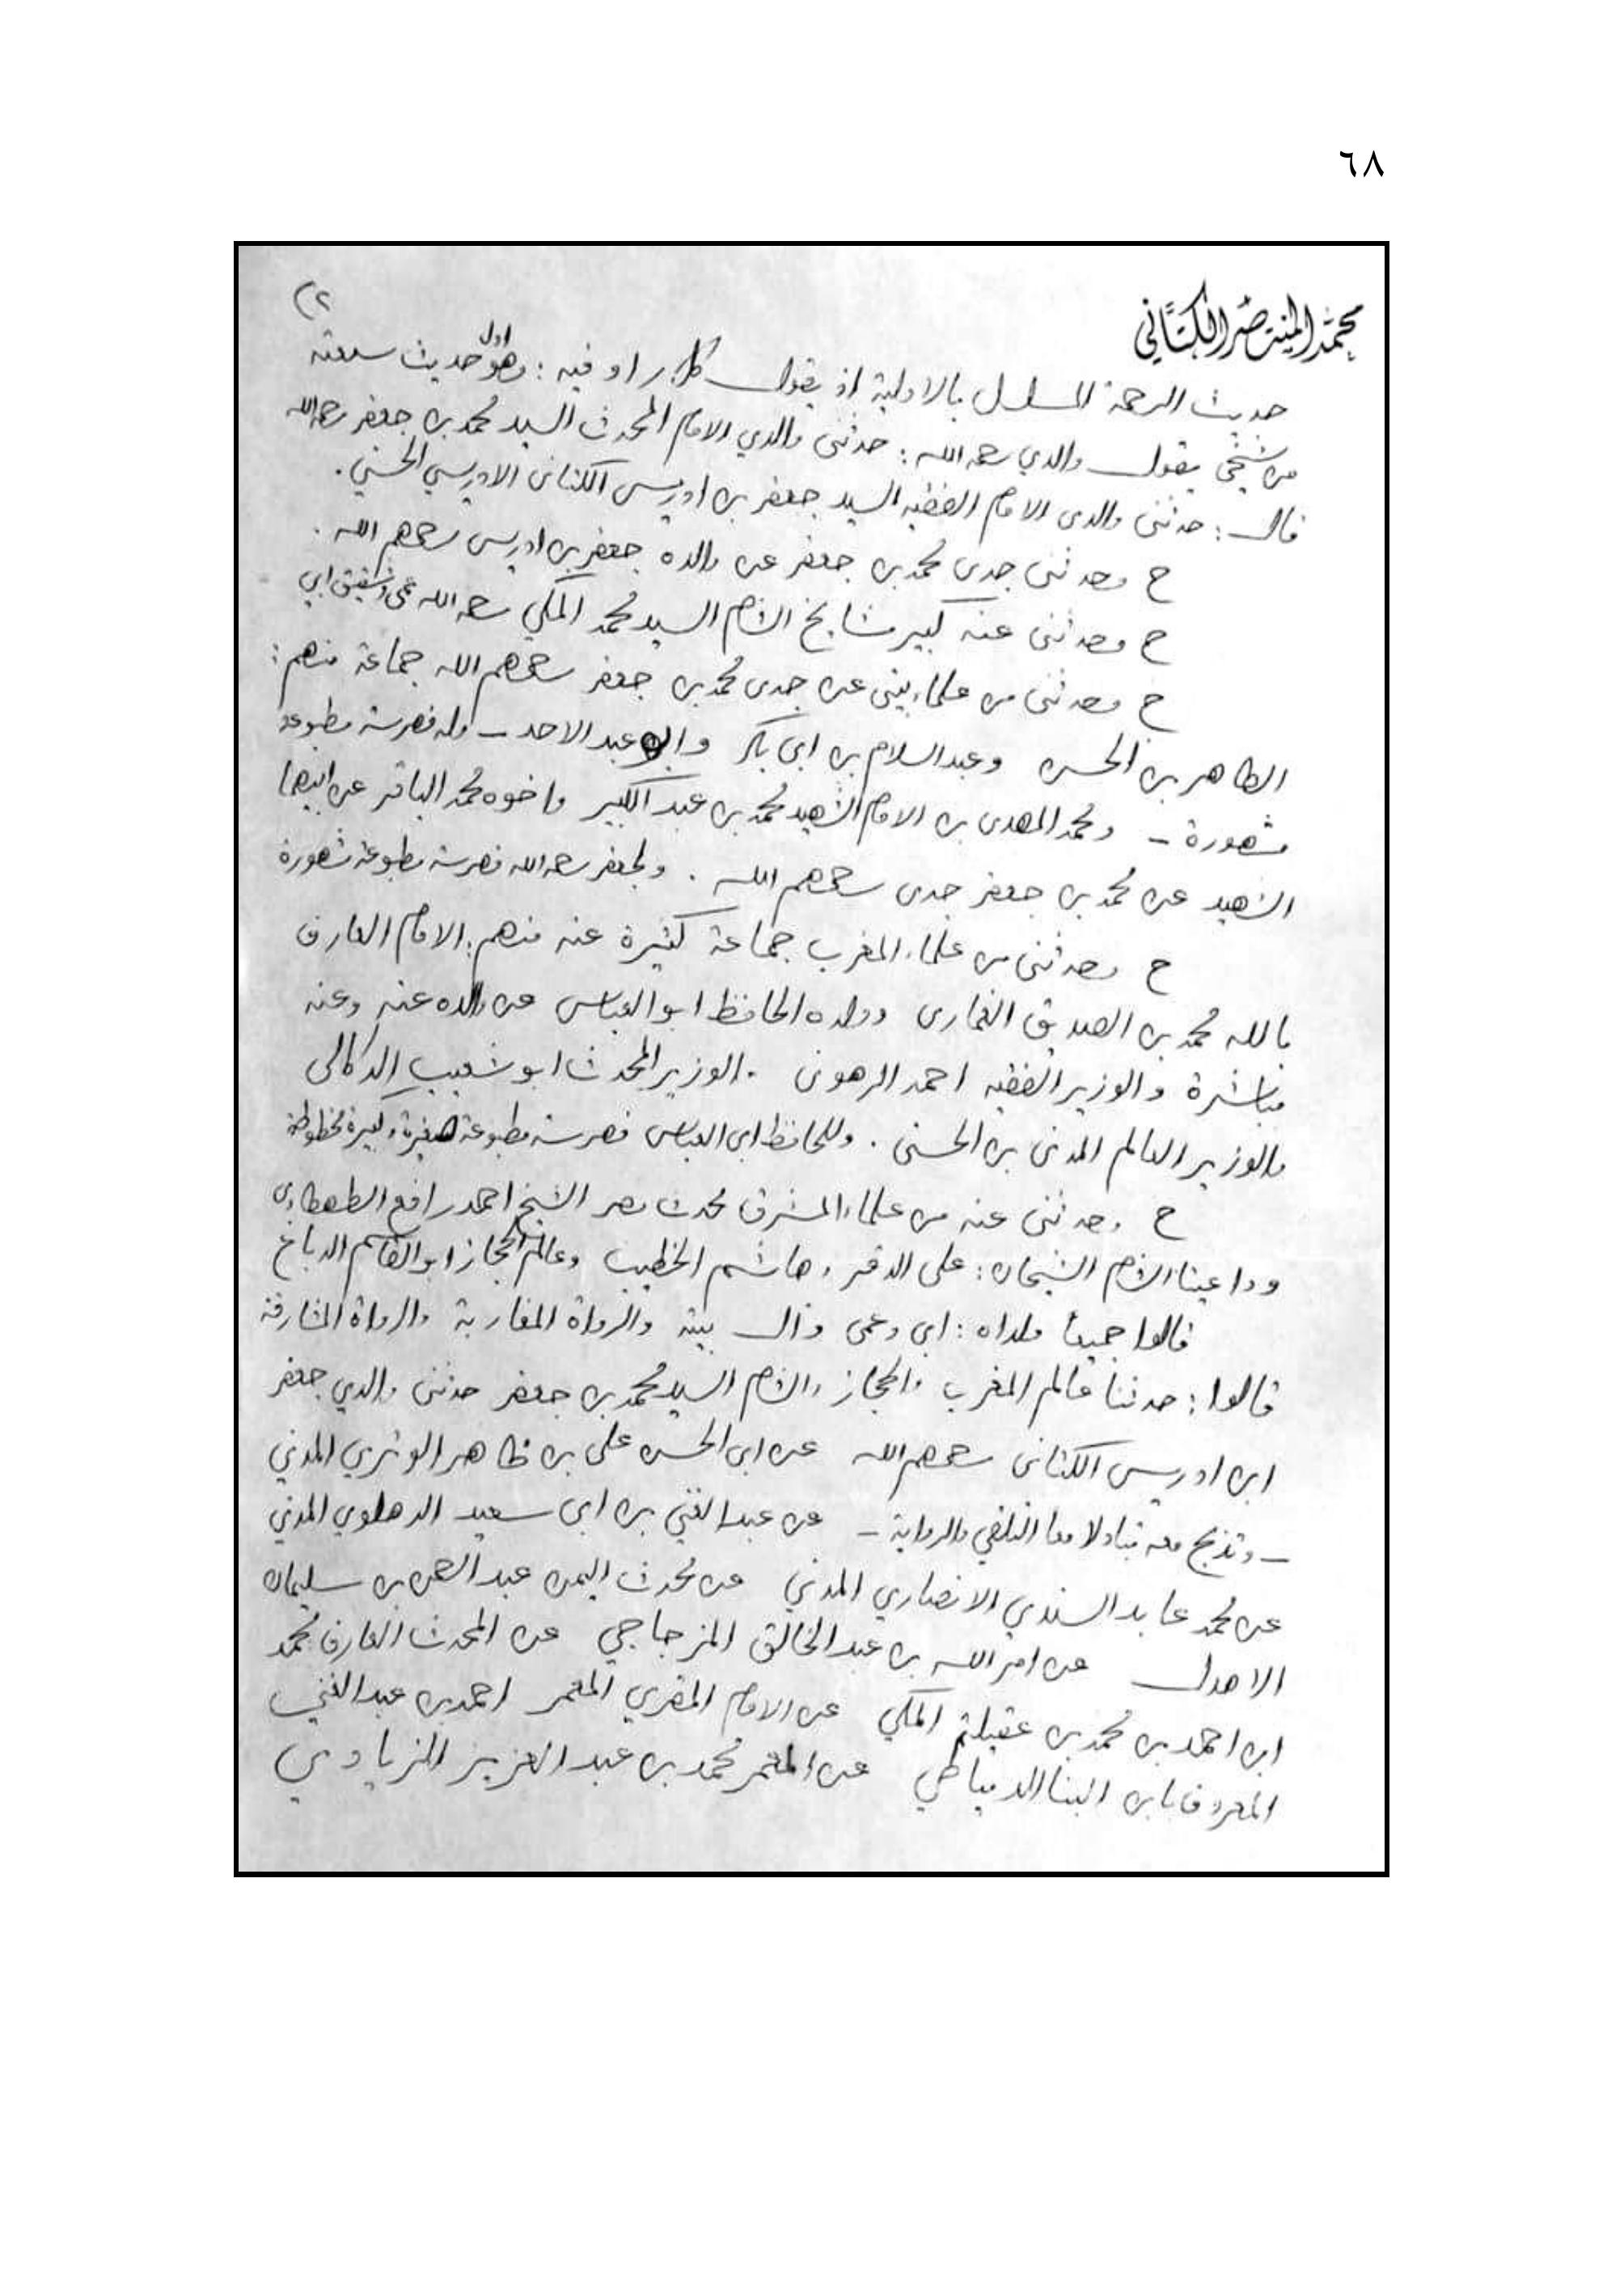 ٦٨
محمد المنتصر الكتاني
(٢
حديث الرحمة المسلسل بالاولية اذ يقول كل راو فيه : وهو اول حديث سمعته
من شيخي يقول والدي رحمه الله : حدثني والدي الامام المحدث السيد محمد بن جعفر رحمه الله
قال : حدثني والدي الامام الفقيه السيد جعفر بن ادريس الكتاني الادريسي الحسني .
ح وحدثني جدي محمد بن جعفر عن والده جعفر بن ادريس رحمهم الله .
ح وحدثني عنه كبير مشايخ الشام السيد محمد المكي رحمه الله عمي وشقيق ابي
ح وحدثني من علماء بيتي عن جدي محمد بن جعفر رحمهم الله جماعة منهم :
الطاهر بن الحسن وعبد السلام بن ابي بكر عبد الاحد – وله فهرسة مطبوعة
مشهورة – ومحمد المهدي بن الامام الشهيد محمد بن عبد الكبير واخوه محمد الباقر عن ابيهما
الشهيد عن محمد بن جعفر جدي رحمهم الله . ولجعفر رحمه الله فهرسة مطبوعة مشهورة
ح وحدثني من علماء المغرب جماعة كثيرة عنه منهم : الامام العارف
بالله محمد بن الصديق الغماري وولده الحافظ ابو العباس عن والده عنه وعنه
مباشرة والوزير الفقيه احمد الرهوني . الوزير المحدث ابو شعيب الدكالي
والوزير العالم المدني بن الحسني . وللحافظ ابي العباس فهرسة مطبوعة صغيرة وكبيرة مخطوطة
ح وحدثني عنه من علماء المشرق محدث مصر الشيخ احمد رافع الطهطاوي
وداعيتا الشام الشيخان : علي الدقر وهاشم الخطيب وعالم الحجاز ابو القاسم الدباغ
قالوا جميعا ولداه : ابي وعمي وآل بيته والرواة المغاربة والرواة المشارقة
قالوا : حدثنا عالم المغرب والحجاز والشام السيد محمد بن جعفر حدثني والدي جعفر
ابن ادريس الكتاني رحمهم الله عن ابي الحسن علي بن ظاهر الوتري المدني
– وتدبج معه تبادلا معا التلقي والرواية – عن عبد الغني بن ابي سعيد الدهلوي المدني
عن محمد عابد السندي الانصاري المدني عن محدث اليمن عبد الرحمن بن سليمان
الاهدل عن امر الله بن عبد الخالق المزجاجي عن المحدث العارف محمد
ابن احمد بن محمد بن عقيلة المكي عن الامام المقري المعمر احمد بن عبد الغني
المعروف بابن البنا الدمياطي عن المعمر محمد بن عبد العزيز الزيادي